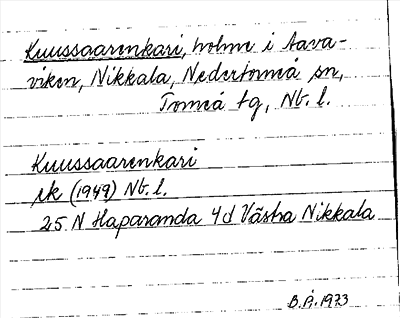 Kuussaarenkari, holme i Aava-
viken, Nikkala, Nedertorneå sn,
Torneå tg, Nb. l.
Kuussaarenkari
ek (1949) Nb. l.
25 N Haparanda 4d Västra Nikkala
B.Å. 1973